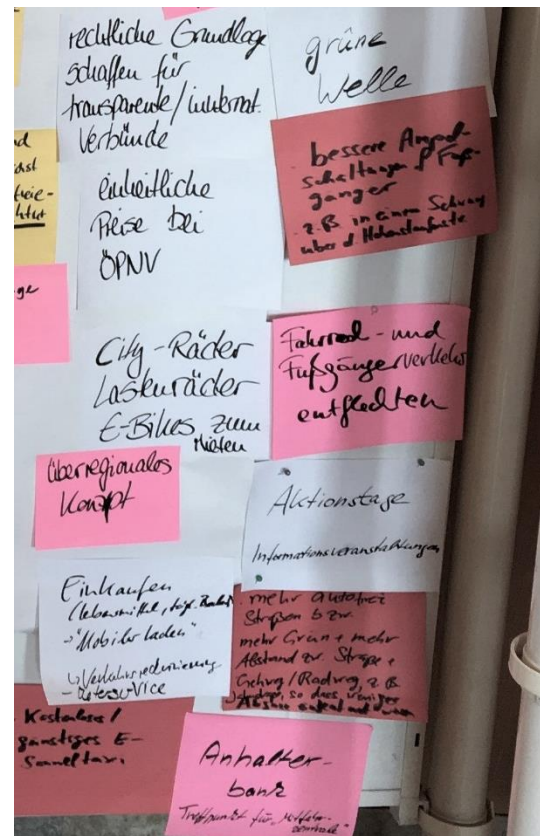 rechtliche Grundlage
schaffen für
transparente/internat.
Verbünde
grüne
Welle
bessere Ampel-
schaltungen f Fuß-
gänger
z.B. in einem Schwung
über d.
einheitliche
Preise bei
ÖPNV
City-Räder
Lastenräder
E-Bikes zum
Mieten
Fahrrad- und
Fußgängerverkehr
entflechten
überregionales
Konzept
Aktionstage
Informationsveranstaltungen
Einkaufen
(Lebensmittel, tägl.
→ "Mobiler Laden"
↳ Verkehrsreduzierung
- Lieferservice
mehr autofrei
Straßen bzw.
mehr Grün + mehr
Abstand zw. Straße +
Gehweg/Radweg, z.B.
so dass weniger
Kostenloses/
günstiges E-
Sammeltaxi
Anhalter-
bank
Treffpunkt für "Mitfahr-
zentrale"